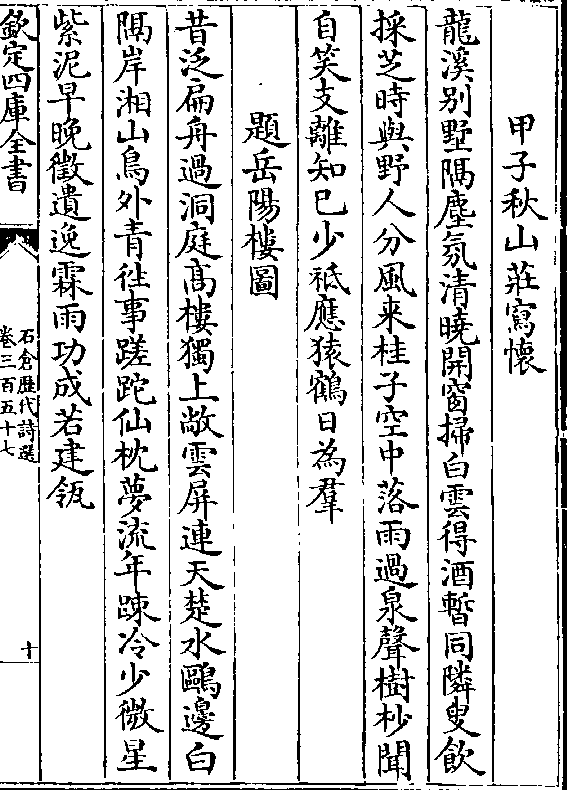 甲子秋山莊寫懷
龍溪别墅隔塵氛清曉開窗掃白雲得酒暫同隣叟飲
採芝時與野人分風來桂子空中落雨過泉聲樹杪聞
自笑支離知已少祗應猿鶴日為羣
題岳陽樓圖
昔泛扁舟過洞庭髙樓獨上敞雲屏連天楚水鷗邊白
隔岸湘山鳥外青徃事蹉跎仙枕夢流年踈冷少微星
紫泥早晚徵遺逸霖雨功成若建瓴
欽定四庫全書
石倉歴代詩選
卷三百五十七
十